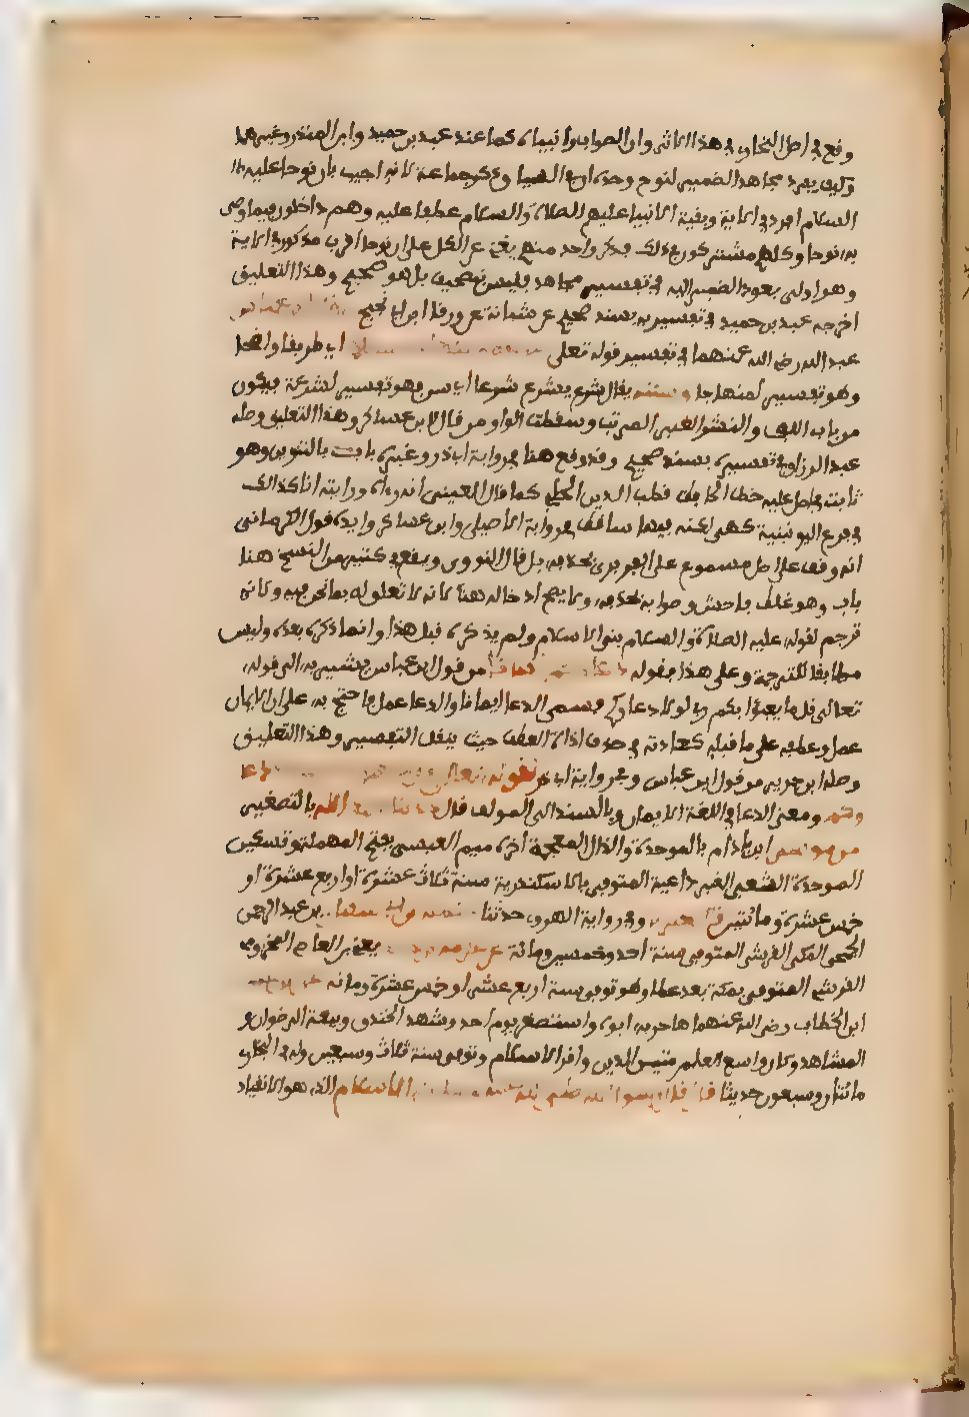 وقع في اصل البخاري في هذا الاثر وان الصواب وانبياه كما عند عبد بن حميد وابن المنذر وغيرهما
وكيف يفرد مجاهد الضمير لنوح وحده مع ان في السياق ذكر جماعة لانه اجيب بان نوحا عليه
السلام افرد في الاية وبقية الانبيا عليهم الصلاة والسلام عطفا عليه وهم داخلون فيما وصى
به نوحا وكلهم مشتركون في ذلك فذكر واحد منهم يغني عن الكل على ان نوحا اقرب مذكور في الاية
وهو اولى بعود الضمير اليه في تفسير مجاهد فليس بتصحيف بل هو صحيح وهذا التعليق
اخرجه عبد بن حميد في تفسيره بسند صحيح عن شبابة عن ورقا ابن ابي نجيح
عبد الله رضي الله عنهما في تفسير قوله تعلى اي طريقا واضحا
وهو تفسير لمنهاجا وسنة يقال شرع يشرع شرعا اي سن فهو تفسير لشرعة فيكون
من باب اللف والنشر الغير المرتب وسقطت الواو من قال لابن عساكر وهذا التعليق وصله
عبد الرزاق في تفسيره بسند صحيح وقد وقع هنا في رواية ابي ذر وغيره باب بالتنوين وهو
ثابت في اصل عليه خط الحافظ قطب الدين الحلبي كما قال العيني انه راه ورايته انا كذالك
في فرع اليونينية كهي لكنه فيها ساقط في رواية الاصيلي وابن عساكر وايده قول الكرماني
انه وقف على اصل مسموع على الفربري بحذفه بل قال النووي ويقع في كثير من النسخ هنا
باب وهو غلط فاحش وصوابه بحذفه ولا يصح ادخاله هنا لانه لا تعلق له بما نحن فيه ولانه
ترجم لقوله عليه الصلاة والسلام بني الاسلام ولم يذكره قبل هذا وانما ذكره بعده وليس
مطابقا للترجمة وعلى هذا فقوله من قول ابن عباس يشير به الى قوله
تعالى قل ما يعبؤا بكم ربي لولا دعاؤكم فسمى الدعا ايمانا والدعا عمل فاحتج به على ان الايمان
عمل وعطفه على ما قبله كعادته في حذف اداة العطف حيث ينقل التفسير وهذا التعليق
وصله ابن جرير من قول ابن عباس وفي رواية ابي ذر لقوله تعالى
ومعنى الدعا في اللغة الايمان وبالسند الى المولف قال الله بالتصغير
بن موسى ابن باذام بالموحدة والذال المعجمة اخره ميم العبسي بفتح المهملة وتسكين
الموحدة الشيعي الغير داعية المتوفى بالاسكندرية سنة ثلاث عشرة او اربع عشرة او
خمس عشرة ومائتين وفي رواية الهروي حدثنا بن عبد الرحمن
الجمحي المكي القرشي المتوفى سنة احد وخمسين ومائة يعني بن العاص المخزومي
القرشي المتوفى بمكة بعد عطا وهو توفي سنة اربع عشر او خمس عشرة ومائه
ابن الخطاب رضي الله عنهما هاجر به ابوه واستصغر يوم احد وشهد الخندق وبيعة الرضوان و
المشاهد وكان واسع العلم متين الدين وافر الاسلام وتوفي سنة ثلاث وسبعين وله في البخاري
مائتان وسبعون حديثا قال قال رسول الله صلى الله الاسلام الذي هو الانقياد